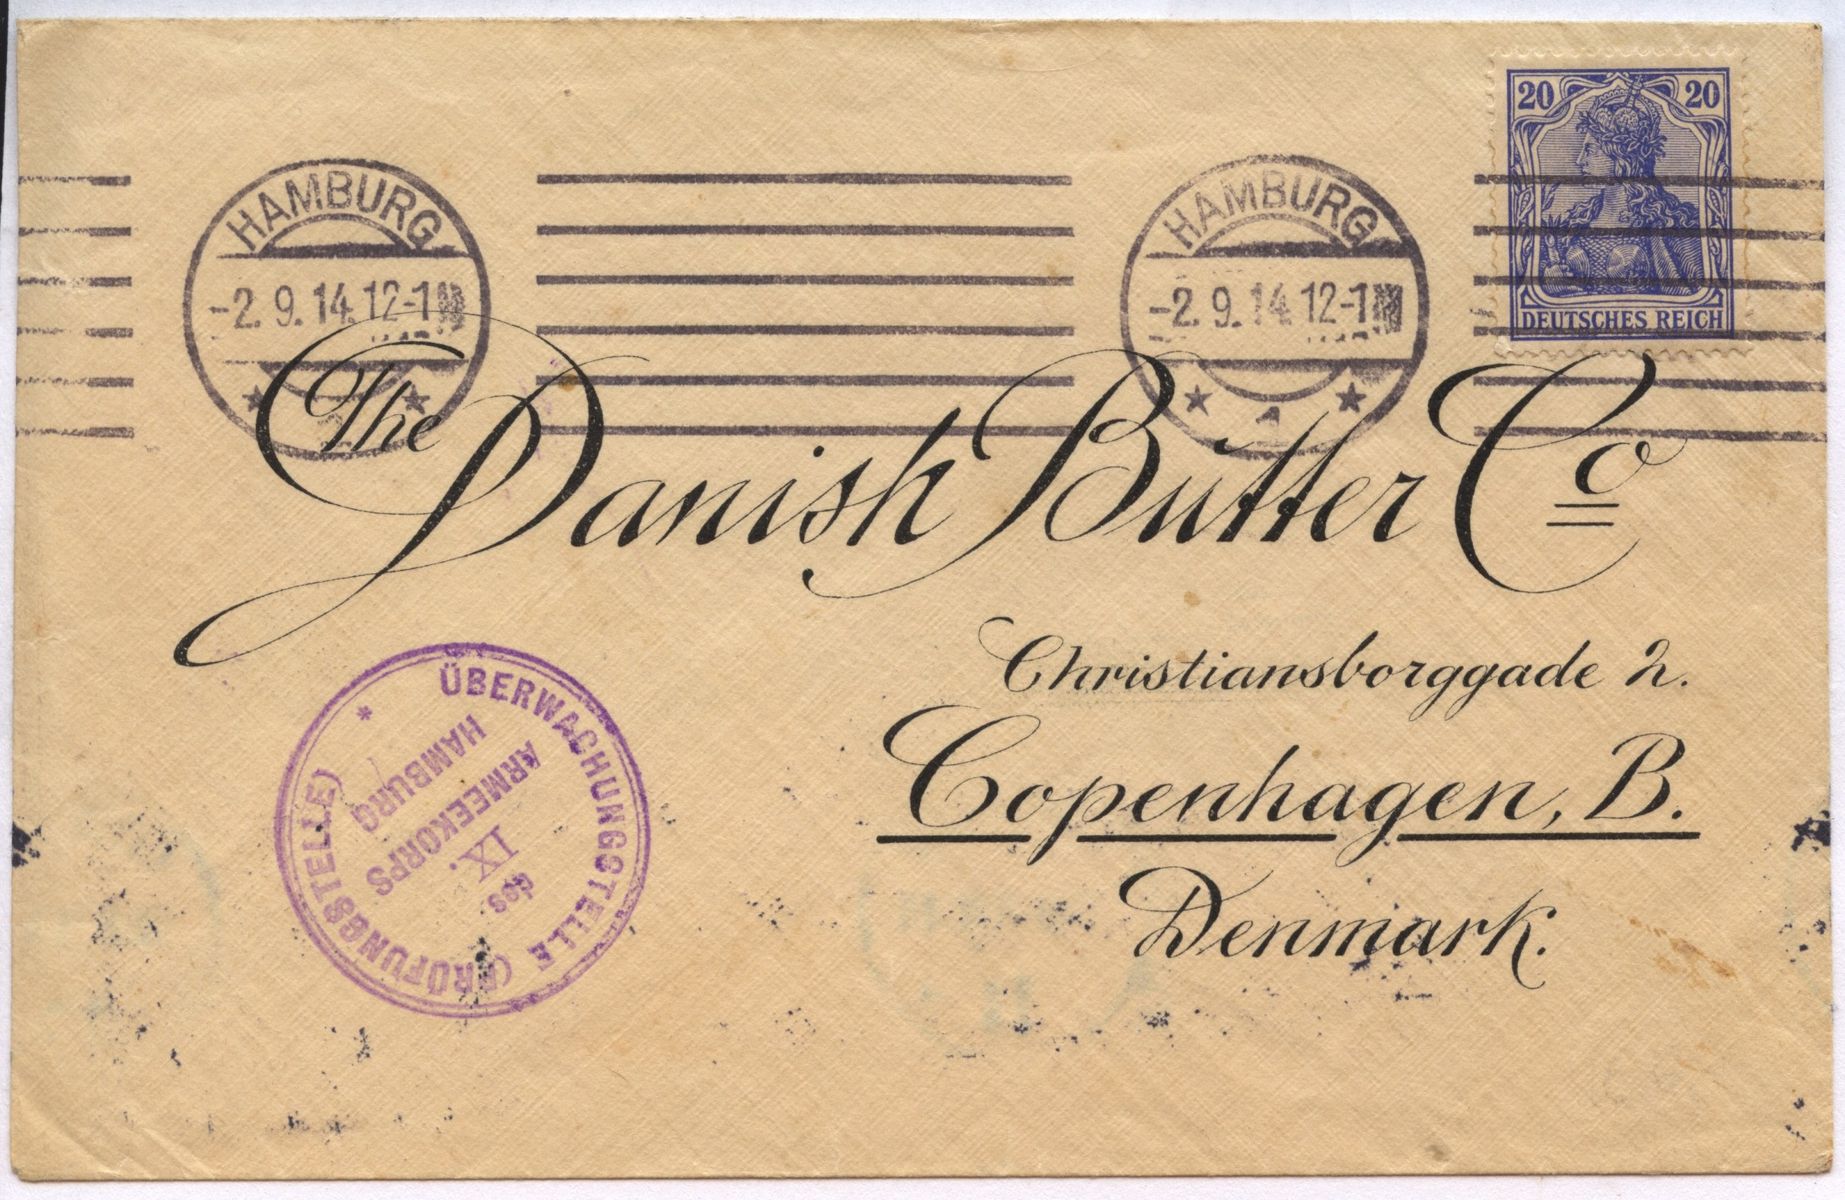 20 20
DEUTSCHES REICH
HAMBURG
-2.9.14.12-1
* 1 *
HAMBURG
-2.9.14.12-1
* 1 *
The Danish Butter Co
Christiansborggade 2.
Copenhagen, B.
Denmark.
ÜBERWACHUNGSTELLE (PRÜFUNGSTELLE) *
des
IX.
ARMEEKORPS
HAMBURG